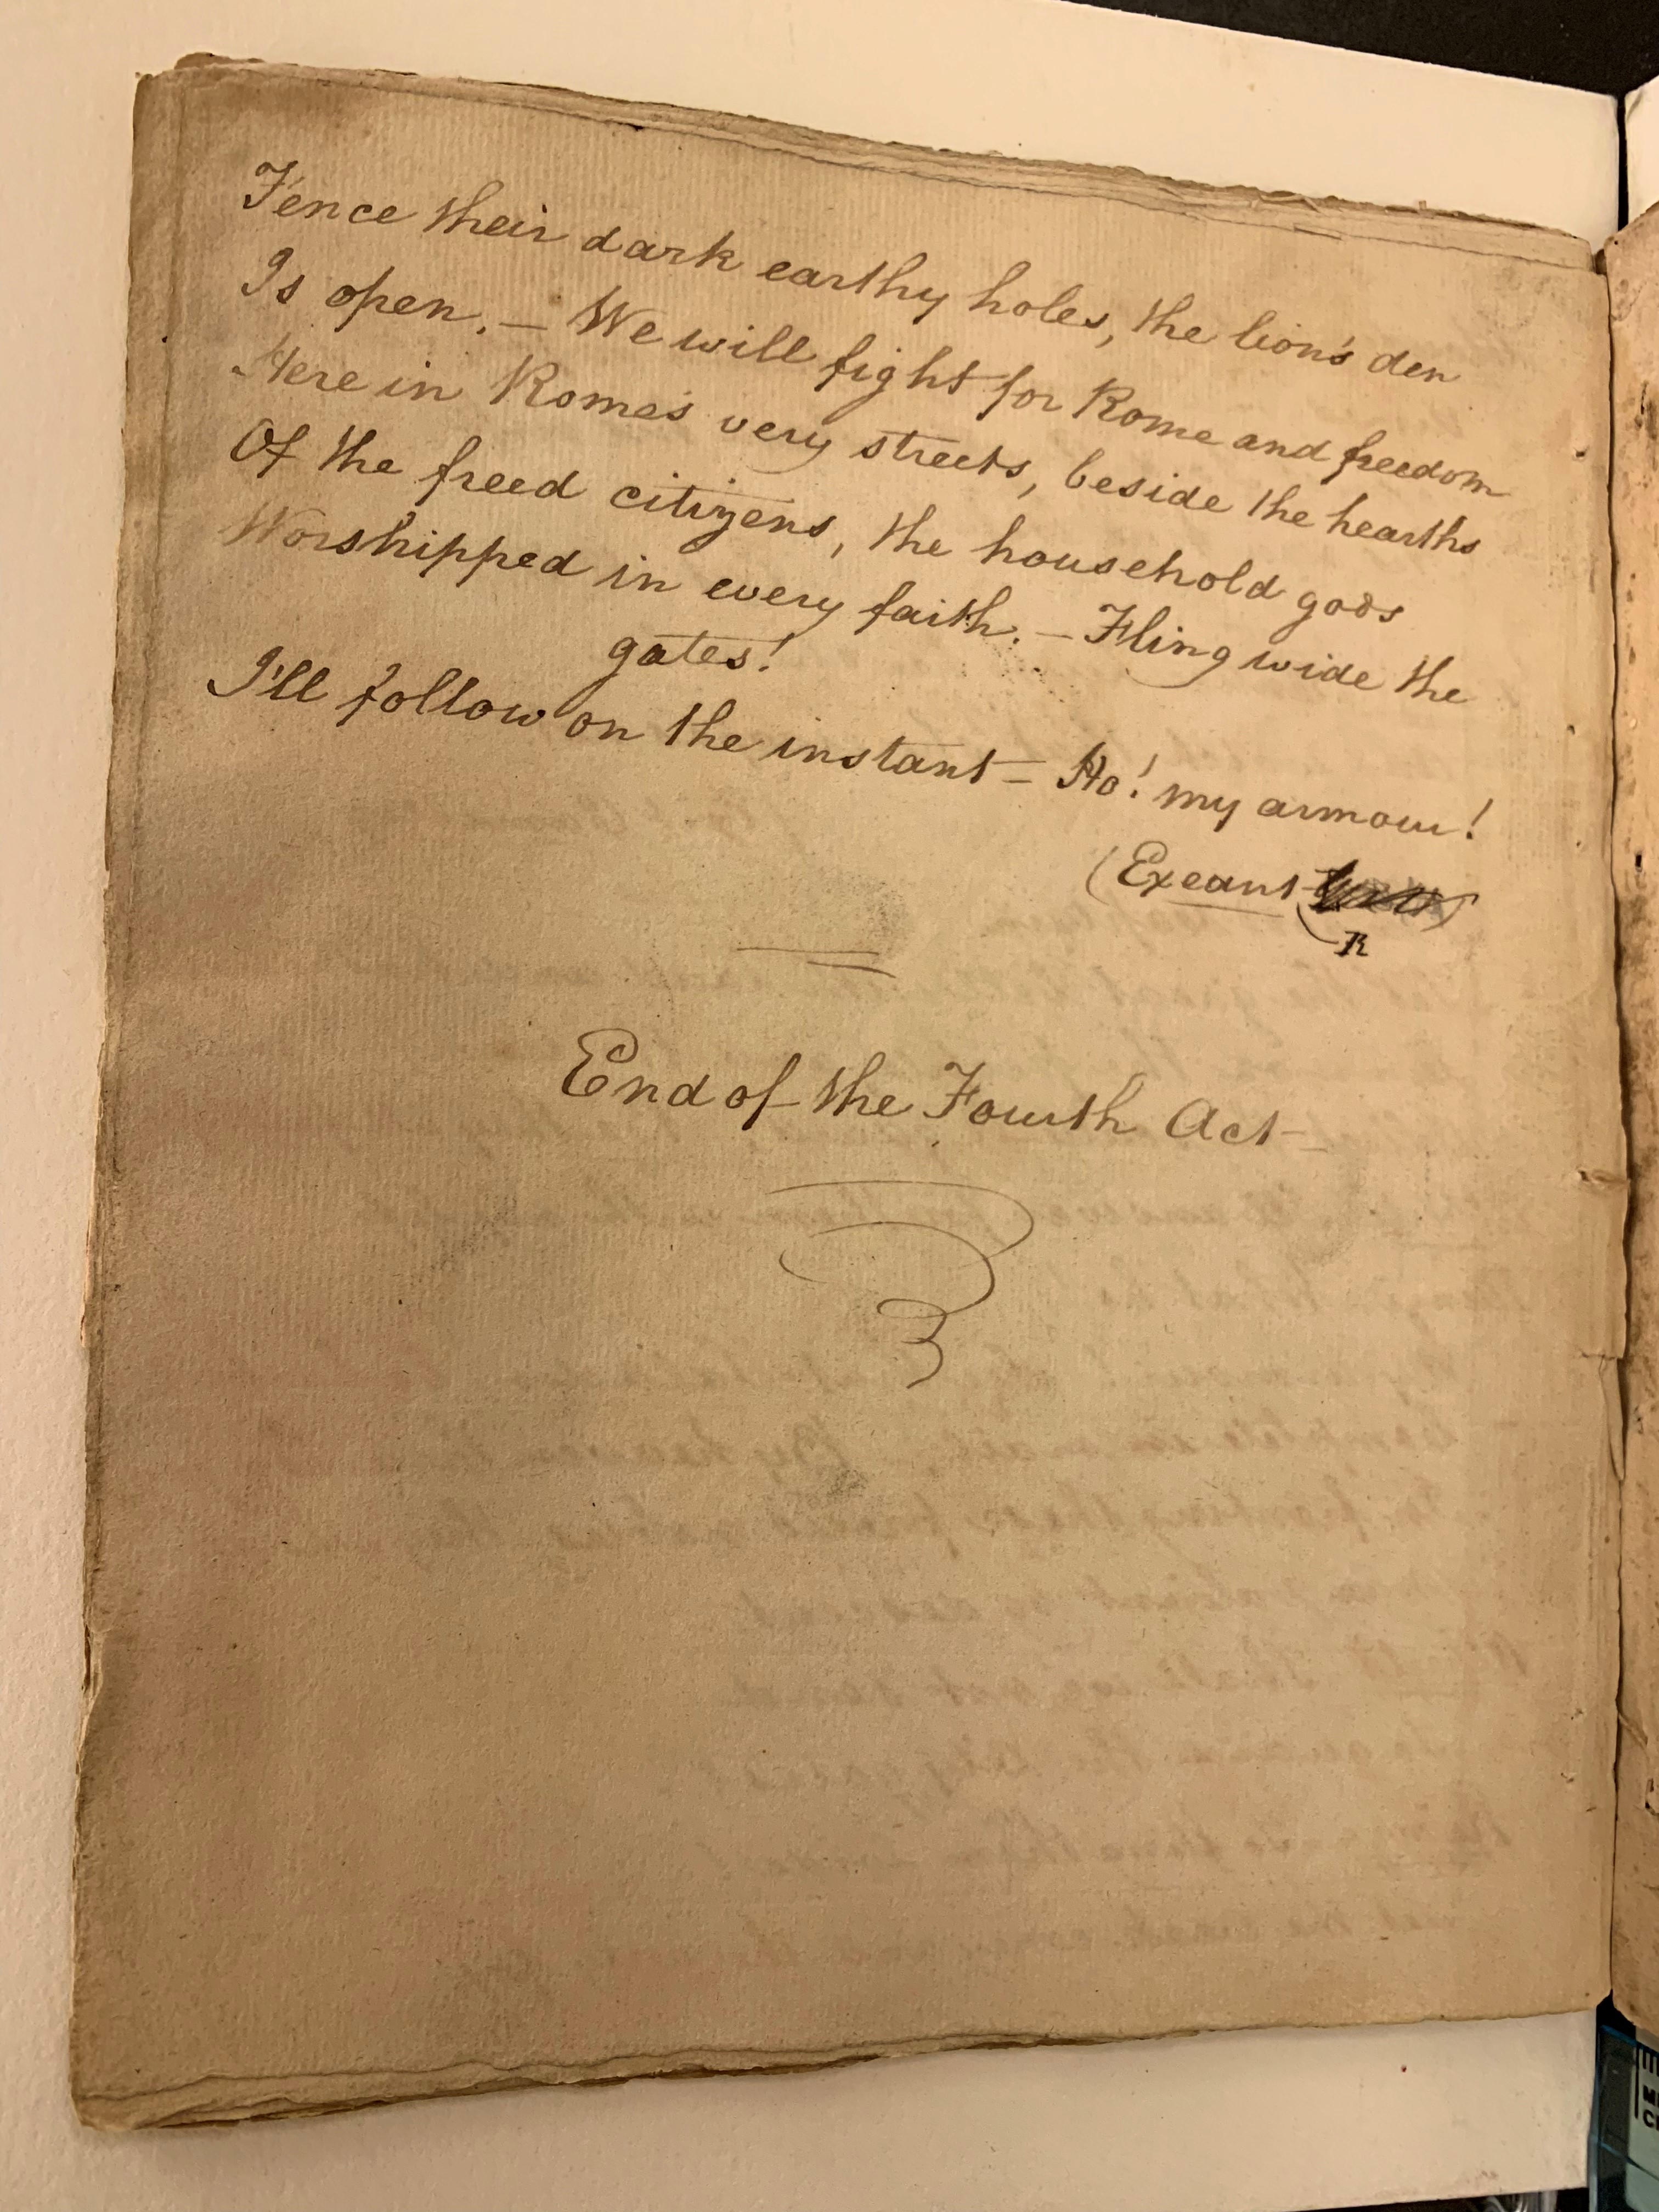 Fence their dark earthy holes, the lion's den
Is open. — We will fight for Rome and freedom
Here in Rome's very streets, beside the hearths
Of the freed citizens, the household gods
Worshipped in every faith. — Fling wide the
gates!
I'll follow on the instant — Ho! my armour!
(Exeunt
R
End of the Fourth Act